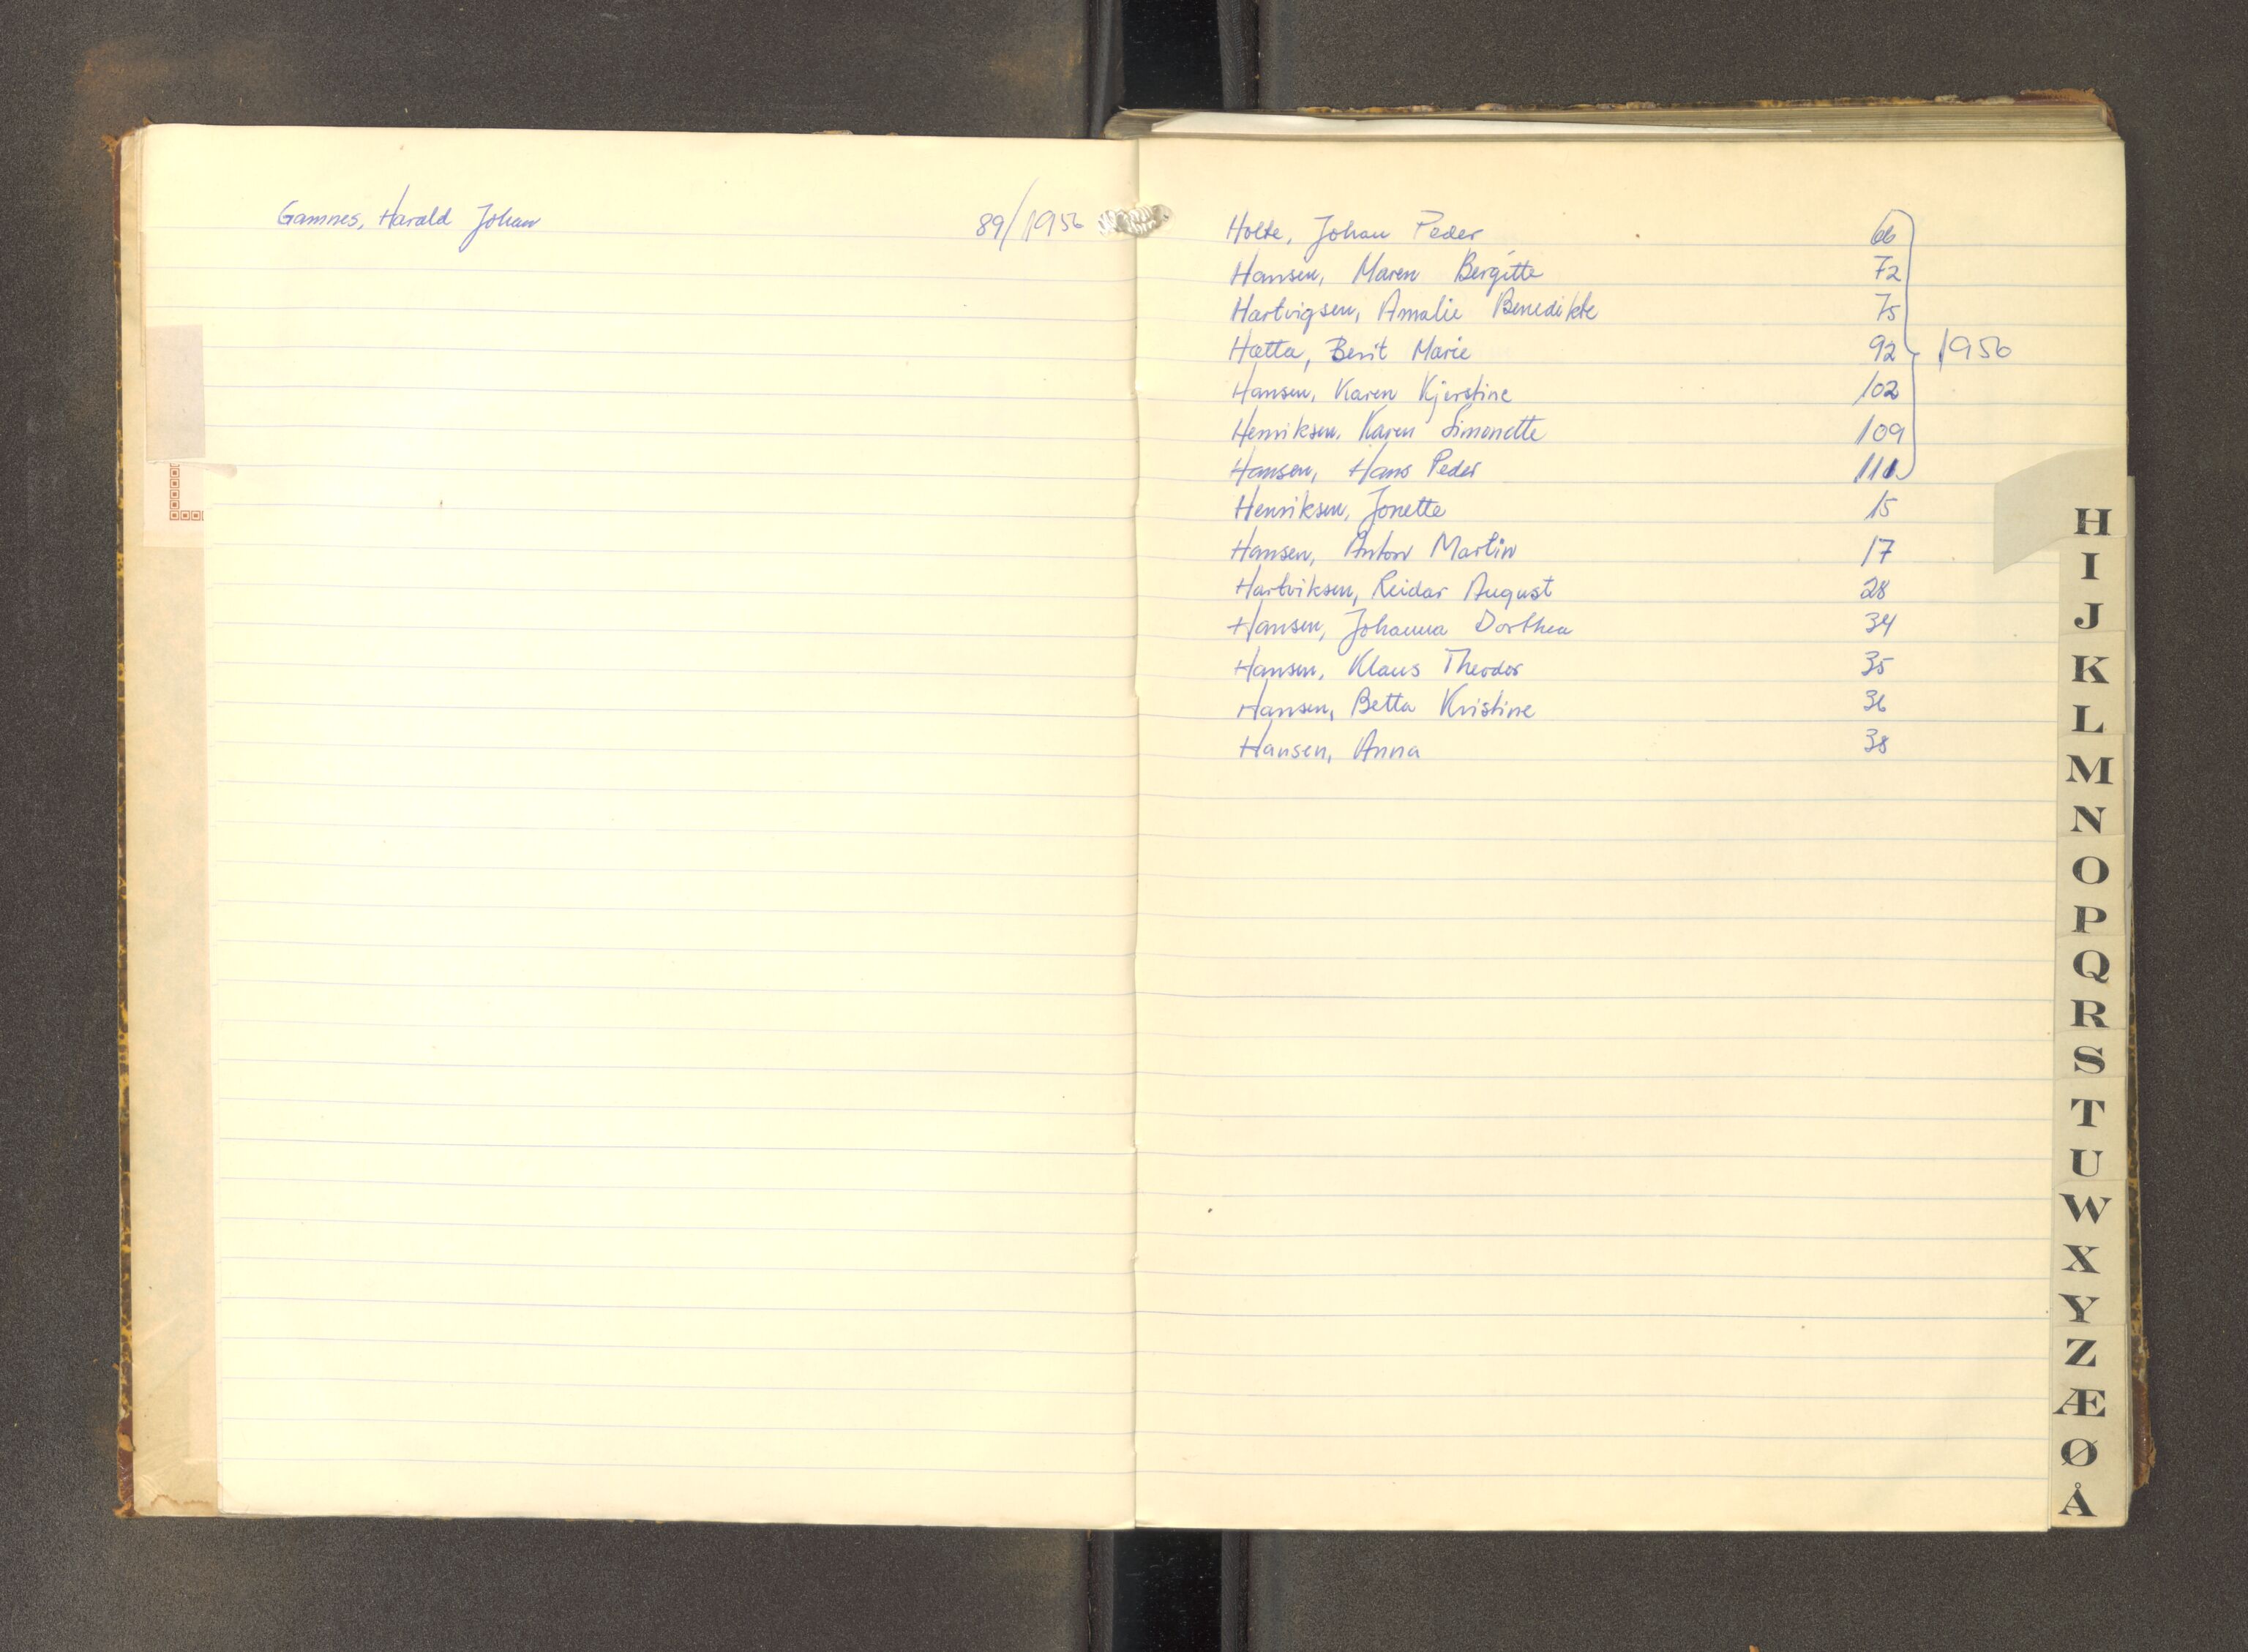 Gamnes, Harald Johan 89/1956
Holte, Johan Peder 66
Hansen, Maren Bergitte 72
Hartvigsen, Amalie Benedikte 75
Hætta, Berit Marie 92
1956
Hansen, Karen Kjerstine 102
Henriksen, Karen Simonette 109
Hansen, Hans Peder
Henriksen, Jonette 15
Hansen, Anton Martin 17
Hartviksen, Reidar August 28
Hansen, Johanna Dorthea 34
Hansen, Klaus Theodor 35
Hansen, Betta Kristine 36
Hansen, Anna 38
H
I
J
K
L
M
N
O
P
Q
R
S
T
U
W
X
Y
Z
Æ
Ø
Å